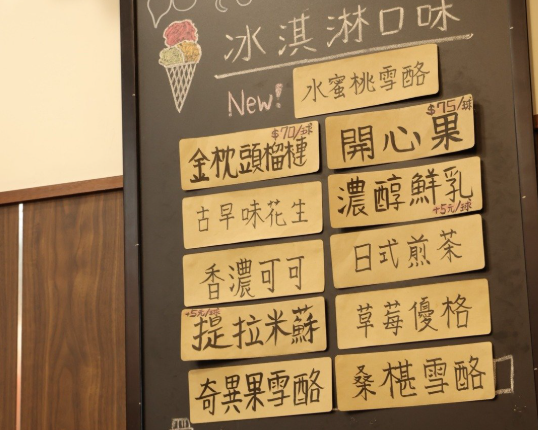 冰淇淋口味
New! 水蜜桃雪酪
$70/球
金枕頭榴槤
$75/球
開心果
古早味花生
濃醇鮮乳
+5元/球
香濃可可
日式煎茶
+5元/球
提拉米蘇
草莓優格
奇異果雪酪
桑椹雪酪